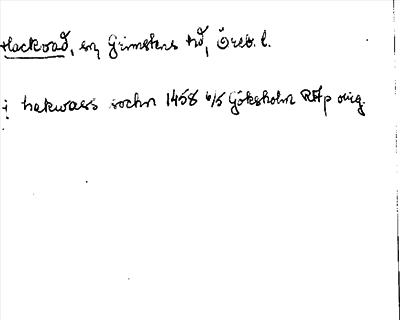 Hackvad, sn, Grimstens hd, Öreb. l.
i hakwass sochn 1458 6/5 Göksholm RAp orig.